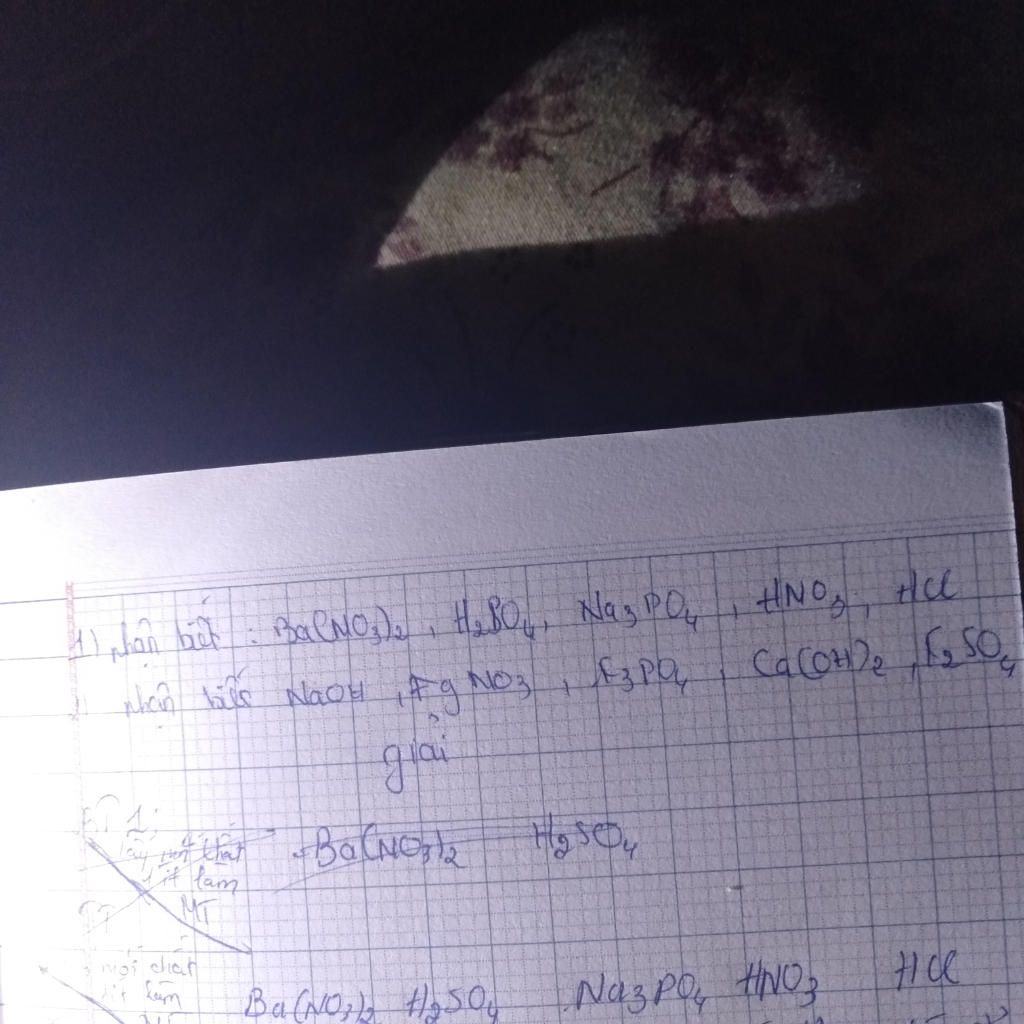 1) nhận biết : Ba(NO3)2, H2SO4, Na3PO4, HNO3, HCl
nhận biết NaOH, AgNO3, K3PO4, Ca(OH)2, K2SO4
giải
Ba(NO3)2 H2SO4
1 ít làm
MT
mỗi chất
ít làm
Ba(NO3)2 H2SO4 Na3PO4 HNO3 HCl